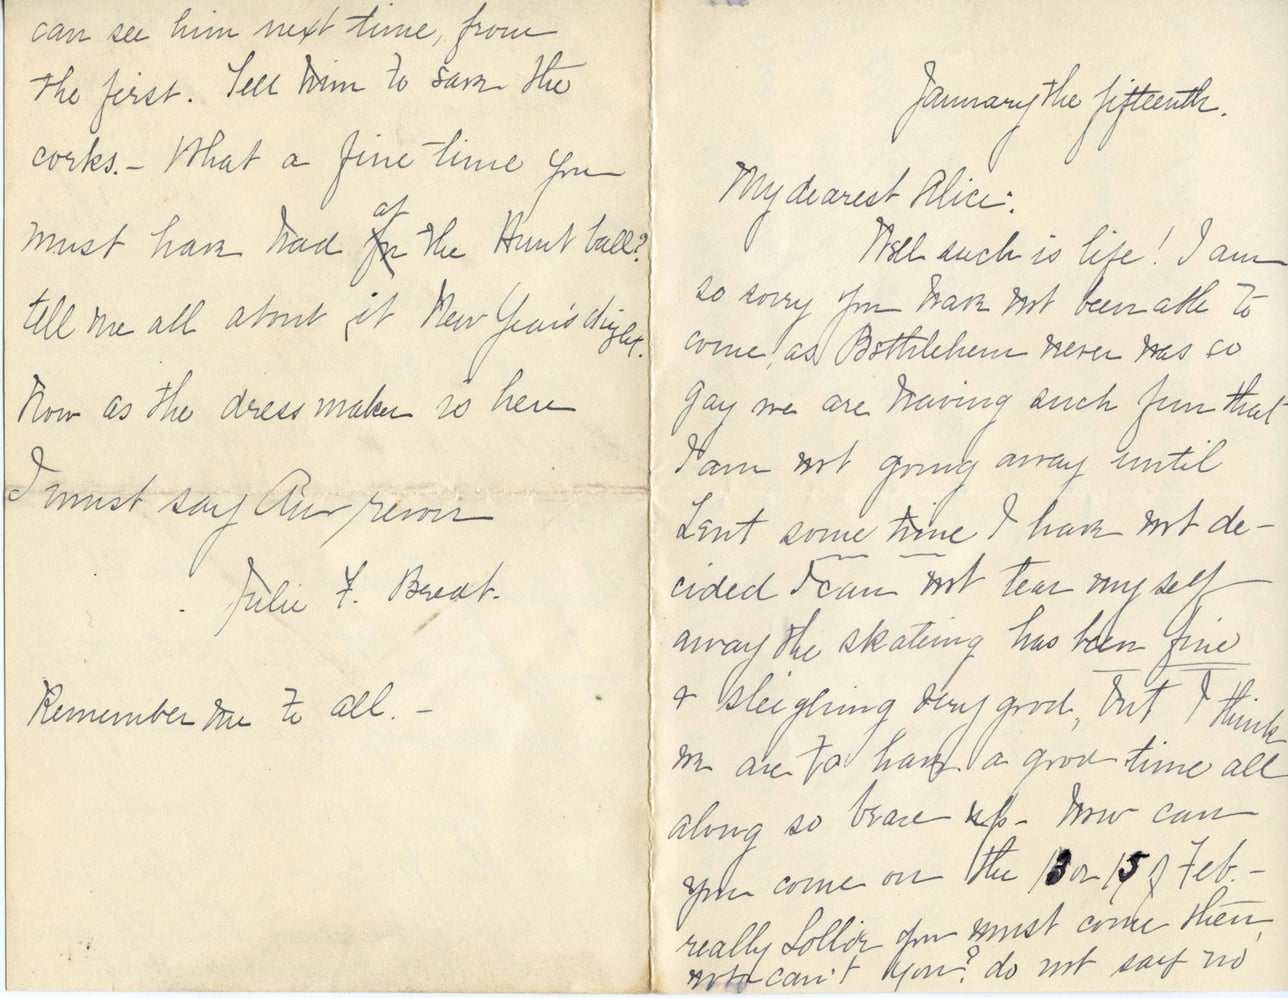 January the fifteenth.
My dearest Alice:
Well such is life! I am
so sorry you have not been able to
come, as Bethlehem never was so
gay we are having such fun that
I am not going away until
Lent some time I have not de-
cided I can not tear myself
away the skateing has been fine
+ sleighing very good, but I think
we are to have a good time all
along so brace up - now can
you come on the 13 or 15 of Feb. -
really you must come then,
can't you? do not say no
can see him next time, from
the first. Tell him to save the
corks. - What a fine time you
must have had at the Hunt ball?
tell me all about it New Year's night.
Now as the dress maker is here
I must say Au revoir
Julie F. Bredt.
Remember me to all. -